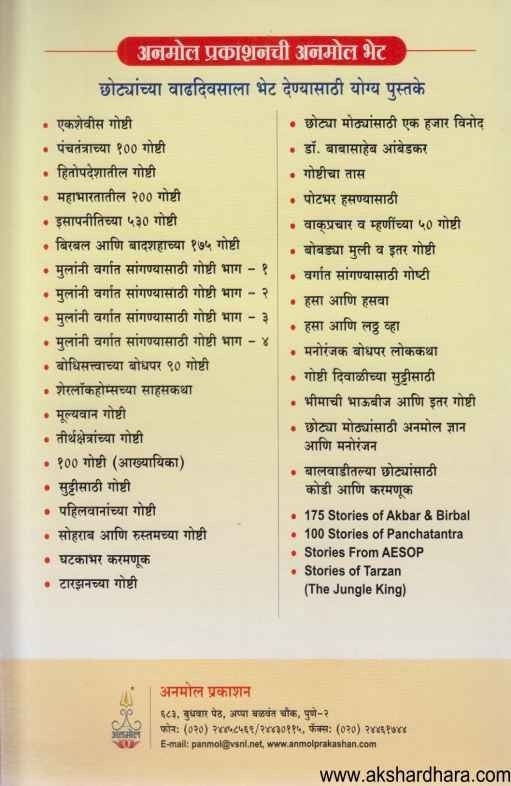 अनमोल प्रकाशनची अनमोल भेट
छोट्यांच्या वाढदिवसाला भेट देण्यासाठी योग्य पुस्तके
• एकशेवीस गोष्टी
• पंचतंत्राच्या १०० गोष्टी
• हितोपदेशातील गोष्टी
• महाभारतातील २०० गोष्टी
• इसापनीतिच्या ५३० गोष्टी
• बिरबल आणि बादशहाच्या १७५ गोष्टी
• मुलांनी वर्गात सांगण्यासाठी गोष्टी भाग - १
• मुलांनी वर्गात सांगण्यासाठी गोष्टी भाग - २
• मुलांनी वर्गात सांगण्यासाठी गोष्टी भाग - ३
• मुलांनी वर्गात सांगण्यासाठी गोष्टी भाग - ४
• बोधिसत्त्वाच्या बोधपर ९० गोष्टी
• शेरलॉकहोम्सच्या साहसकथा
• मूल्यवान गोष्टी
• तीर्थक्षेत्रांच्या गोष्टी
• १०० गोष्टी (आख्यायिका)
• सुट्टीसाठी गोष्टी
• पहिलवानांच्या गोष्टी
• सोहराब आणि रुस्तमच्या गोष्टी
• घटकाभर करमणूक
• टारझनच्या गोष्टी
• छोट्या मोठ्यांसाठी एक हजार विनोद
• डॉ. बाबासाहेब आंबेडकर
• गोष्टीचा तास
• पोटभर हसण्यासाठी
• वाक्प्रचार व म्हणींच्या ५० गोष्टी
• बोबड्या मुली व इतर गोष्टी
• वर्गात सांगण्यासाठी गोष्टी
• हसा आणि हसवा
• हसा आणि लठ्ठ व्हा
• मनोरंजक बोधपर लोककथा
• गोष्टी दिवाळीच्या सुट्टीसाठी
• भीमाची भाऊबीज आणि इतर गोष्टी
• छोट्या मोठ्यांसाठी अनमोल ज्ञान
आणि मनोरंजन
• बालवाडीतल्या छोट्यांसाठी
कोडी आणि करमणूक
• 175 Stories of Akbar & Birbal
• 100 Stories of Panchatantra
• Stories From AESOP
• Stories of Tarzan
(The Jungle King)
अनमोल
अनमोल प्रकाशन
६८३, बुधवार पेठ, अप्पा बळवंत चौक, पुणे-२
फोन: (०२०) २४४५८५६९/२४४३०११५, फॅक्स: (०२०) २४४६१७४४
E-mail: panmol@vsnl.net, www.anmolprakashan.com
www.akshardhara.com